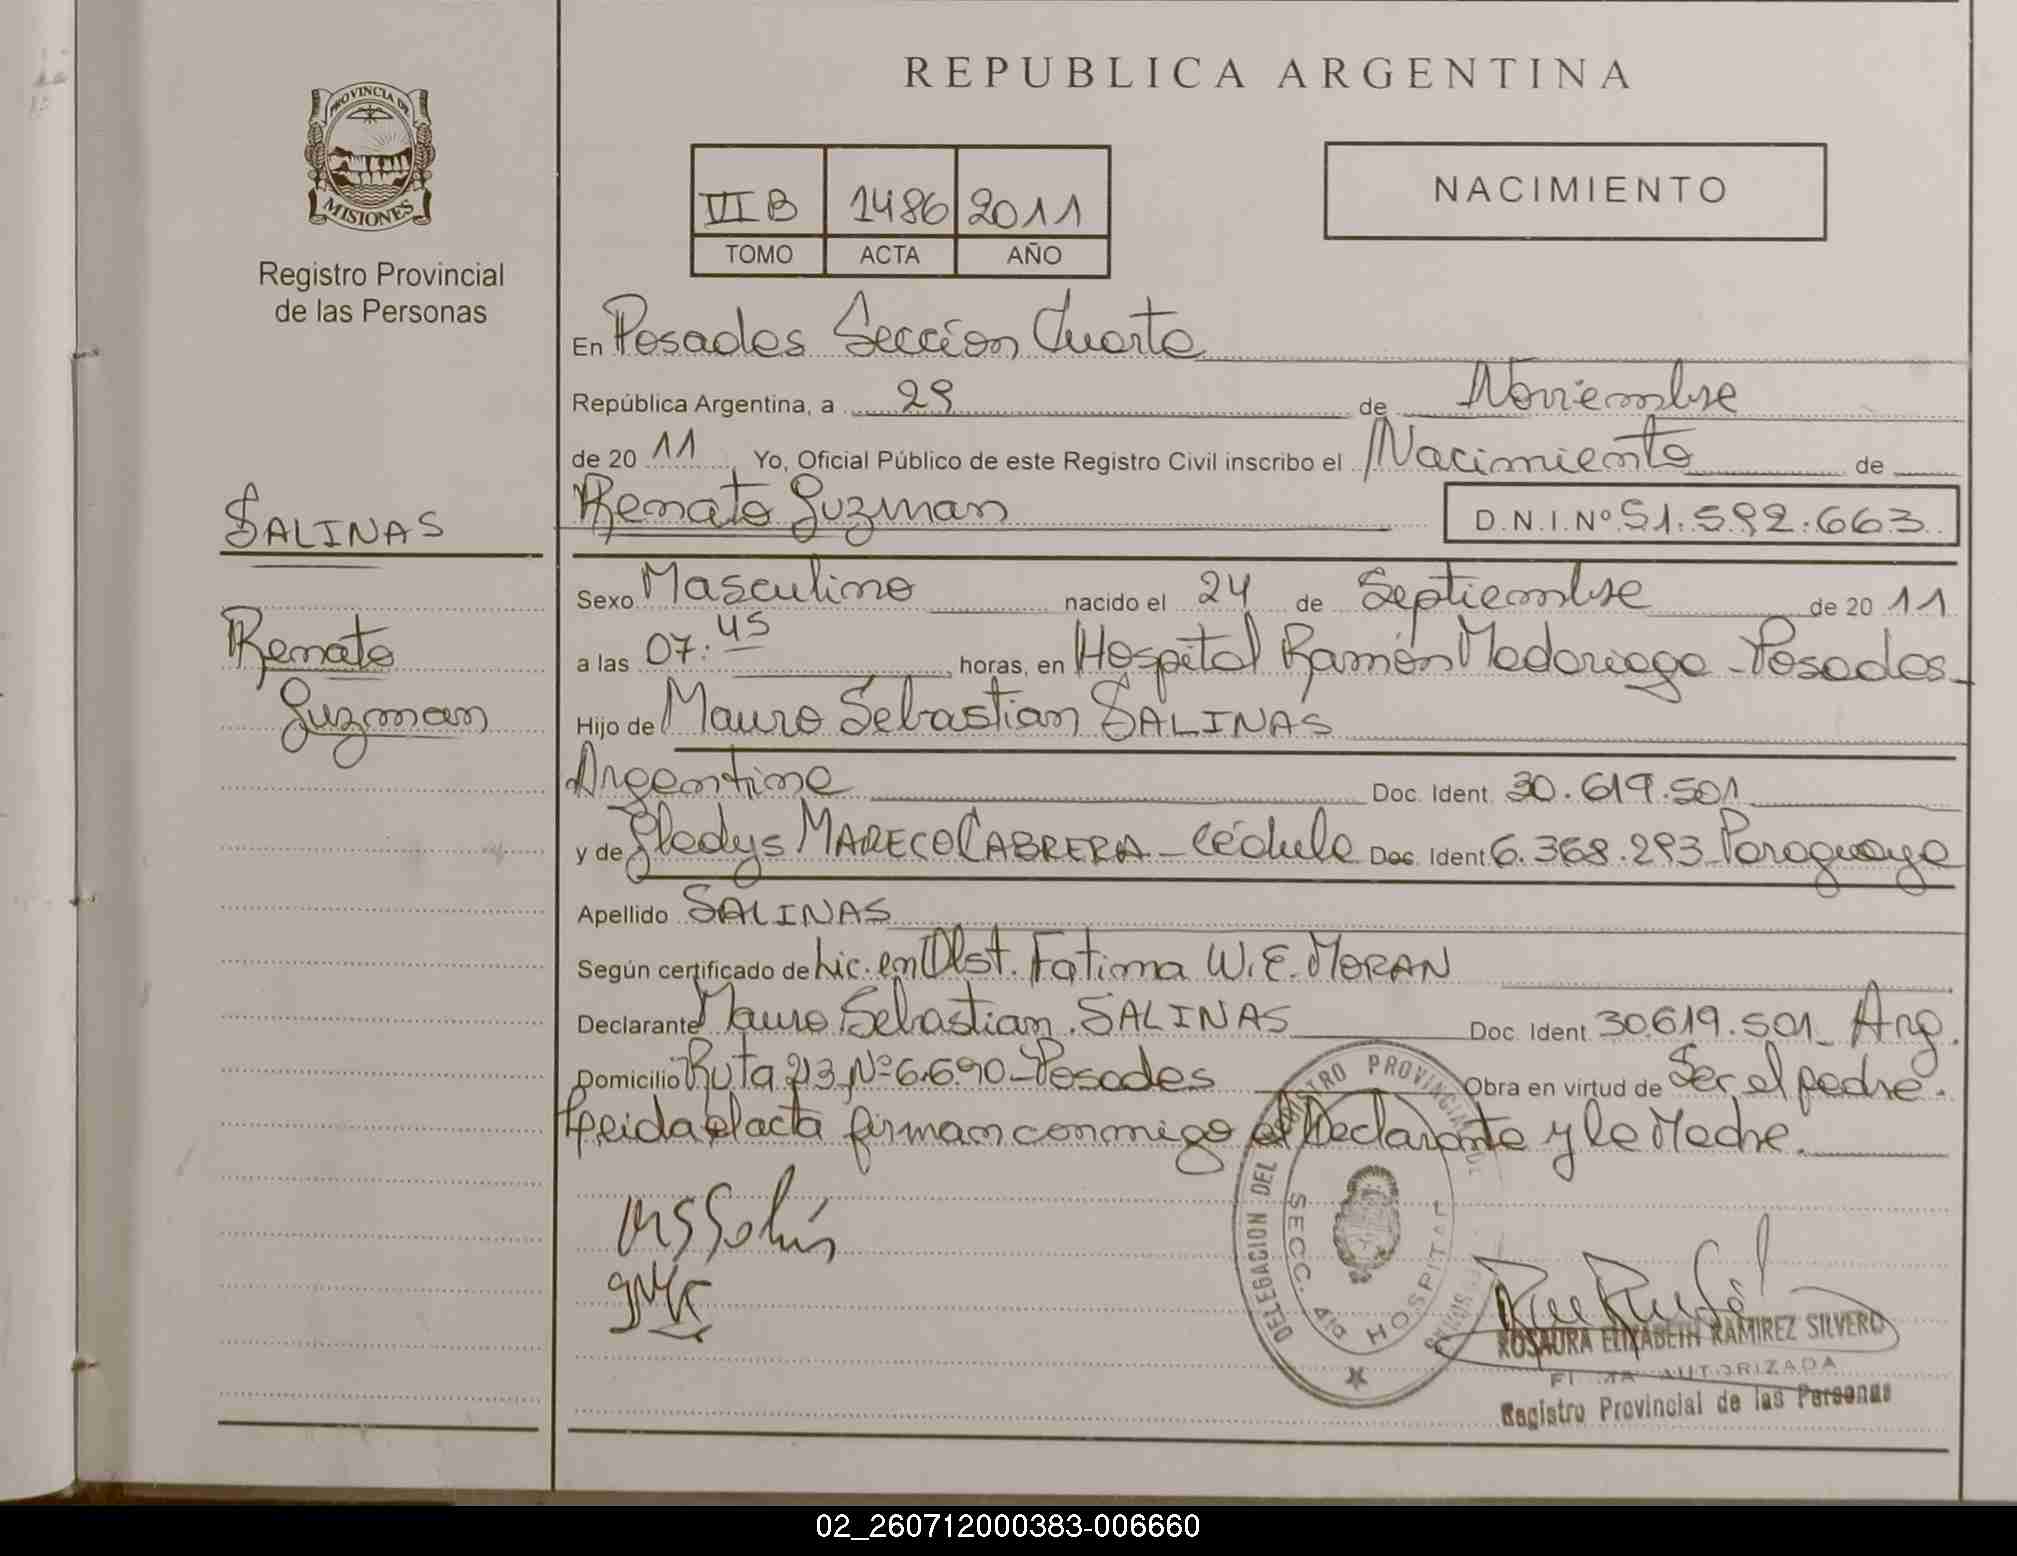 REPUBLICA ARGENTINA
PROVINCIA DE
MISIONES
Registro Provincial
de las Personas
VI B 1486 2011
TOMO ACTA AÑO
NACIMIENTO
En Posadas Sección Cuarta
República Argentina, a 29 de Noviembre
de 20 11, Yo, Oficial Público de este Registro Civil inscribo el Nacimiento de
Renato Guzman D.N.I.Nº 51.592.663
SALINAS
Renato
Guzman
Sexo Masculino nacido el 24 de Septiembre de 20 11
a las 07:45 horas, en Hospital Ramón Madariaga - Posadas
Hijo de Mauro Sebastian SALINAS
Argentino Doc. Ident. 30.619.501
y de Gladys MARECO CABRERA - Cédula Doc. Ident 6.368.293 Paraguaya
Apellido SALINAS
Según certificado de Lic. en Obst. Fatima W. E. MORAN
Declarante Mauro Sebastian SALINAS Doc. Ident 30.619.501 Arg.
Domicilio Ruta 213 Nº 6.690 - Posadas Obra en virtud de Ser el padre.
Leida el acta firman conmigo el Declarante y la Madre.
DELEGACION DEL REGISTRO PROVINCIAL DE
SECC. 4ta HOSPITAL
ROSAURA ELIZABETH RAMIREZ SILVERO
FIRMA AUTORIZADA
Registro Provincial de las Personas
02_260712000383-006660